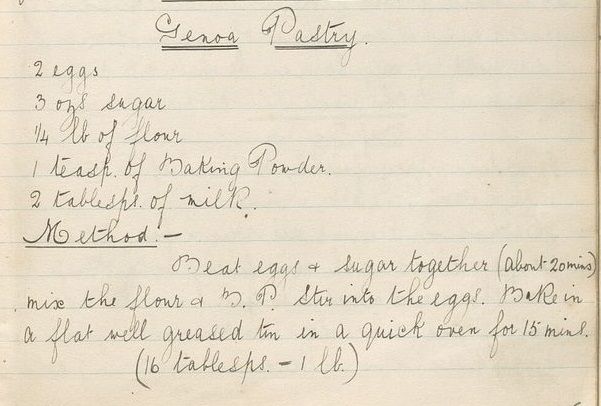 Genoa Pastry.
2 eggs
3 ozs sugar
1/4 lb of flour
1 teasp. of Baking Powder.
2 tablesps. of milk.
Method:-
Beat eggs & sugar together (about 20 mins)
mix the flour & B. P. Stir into the eggs. Bake in
a flat well greased tin in a quick oven for 15 mins.
(16 tablesps. - 1 lb.)